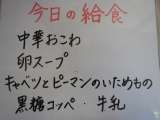 今日の給食
中華おこわ
卵スープ
キャベツとピーマンのいためもの
黒糖コッペ・牛乳